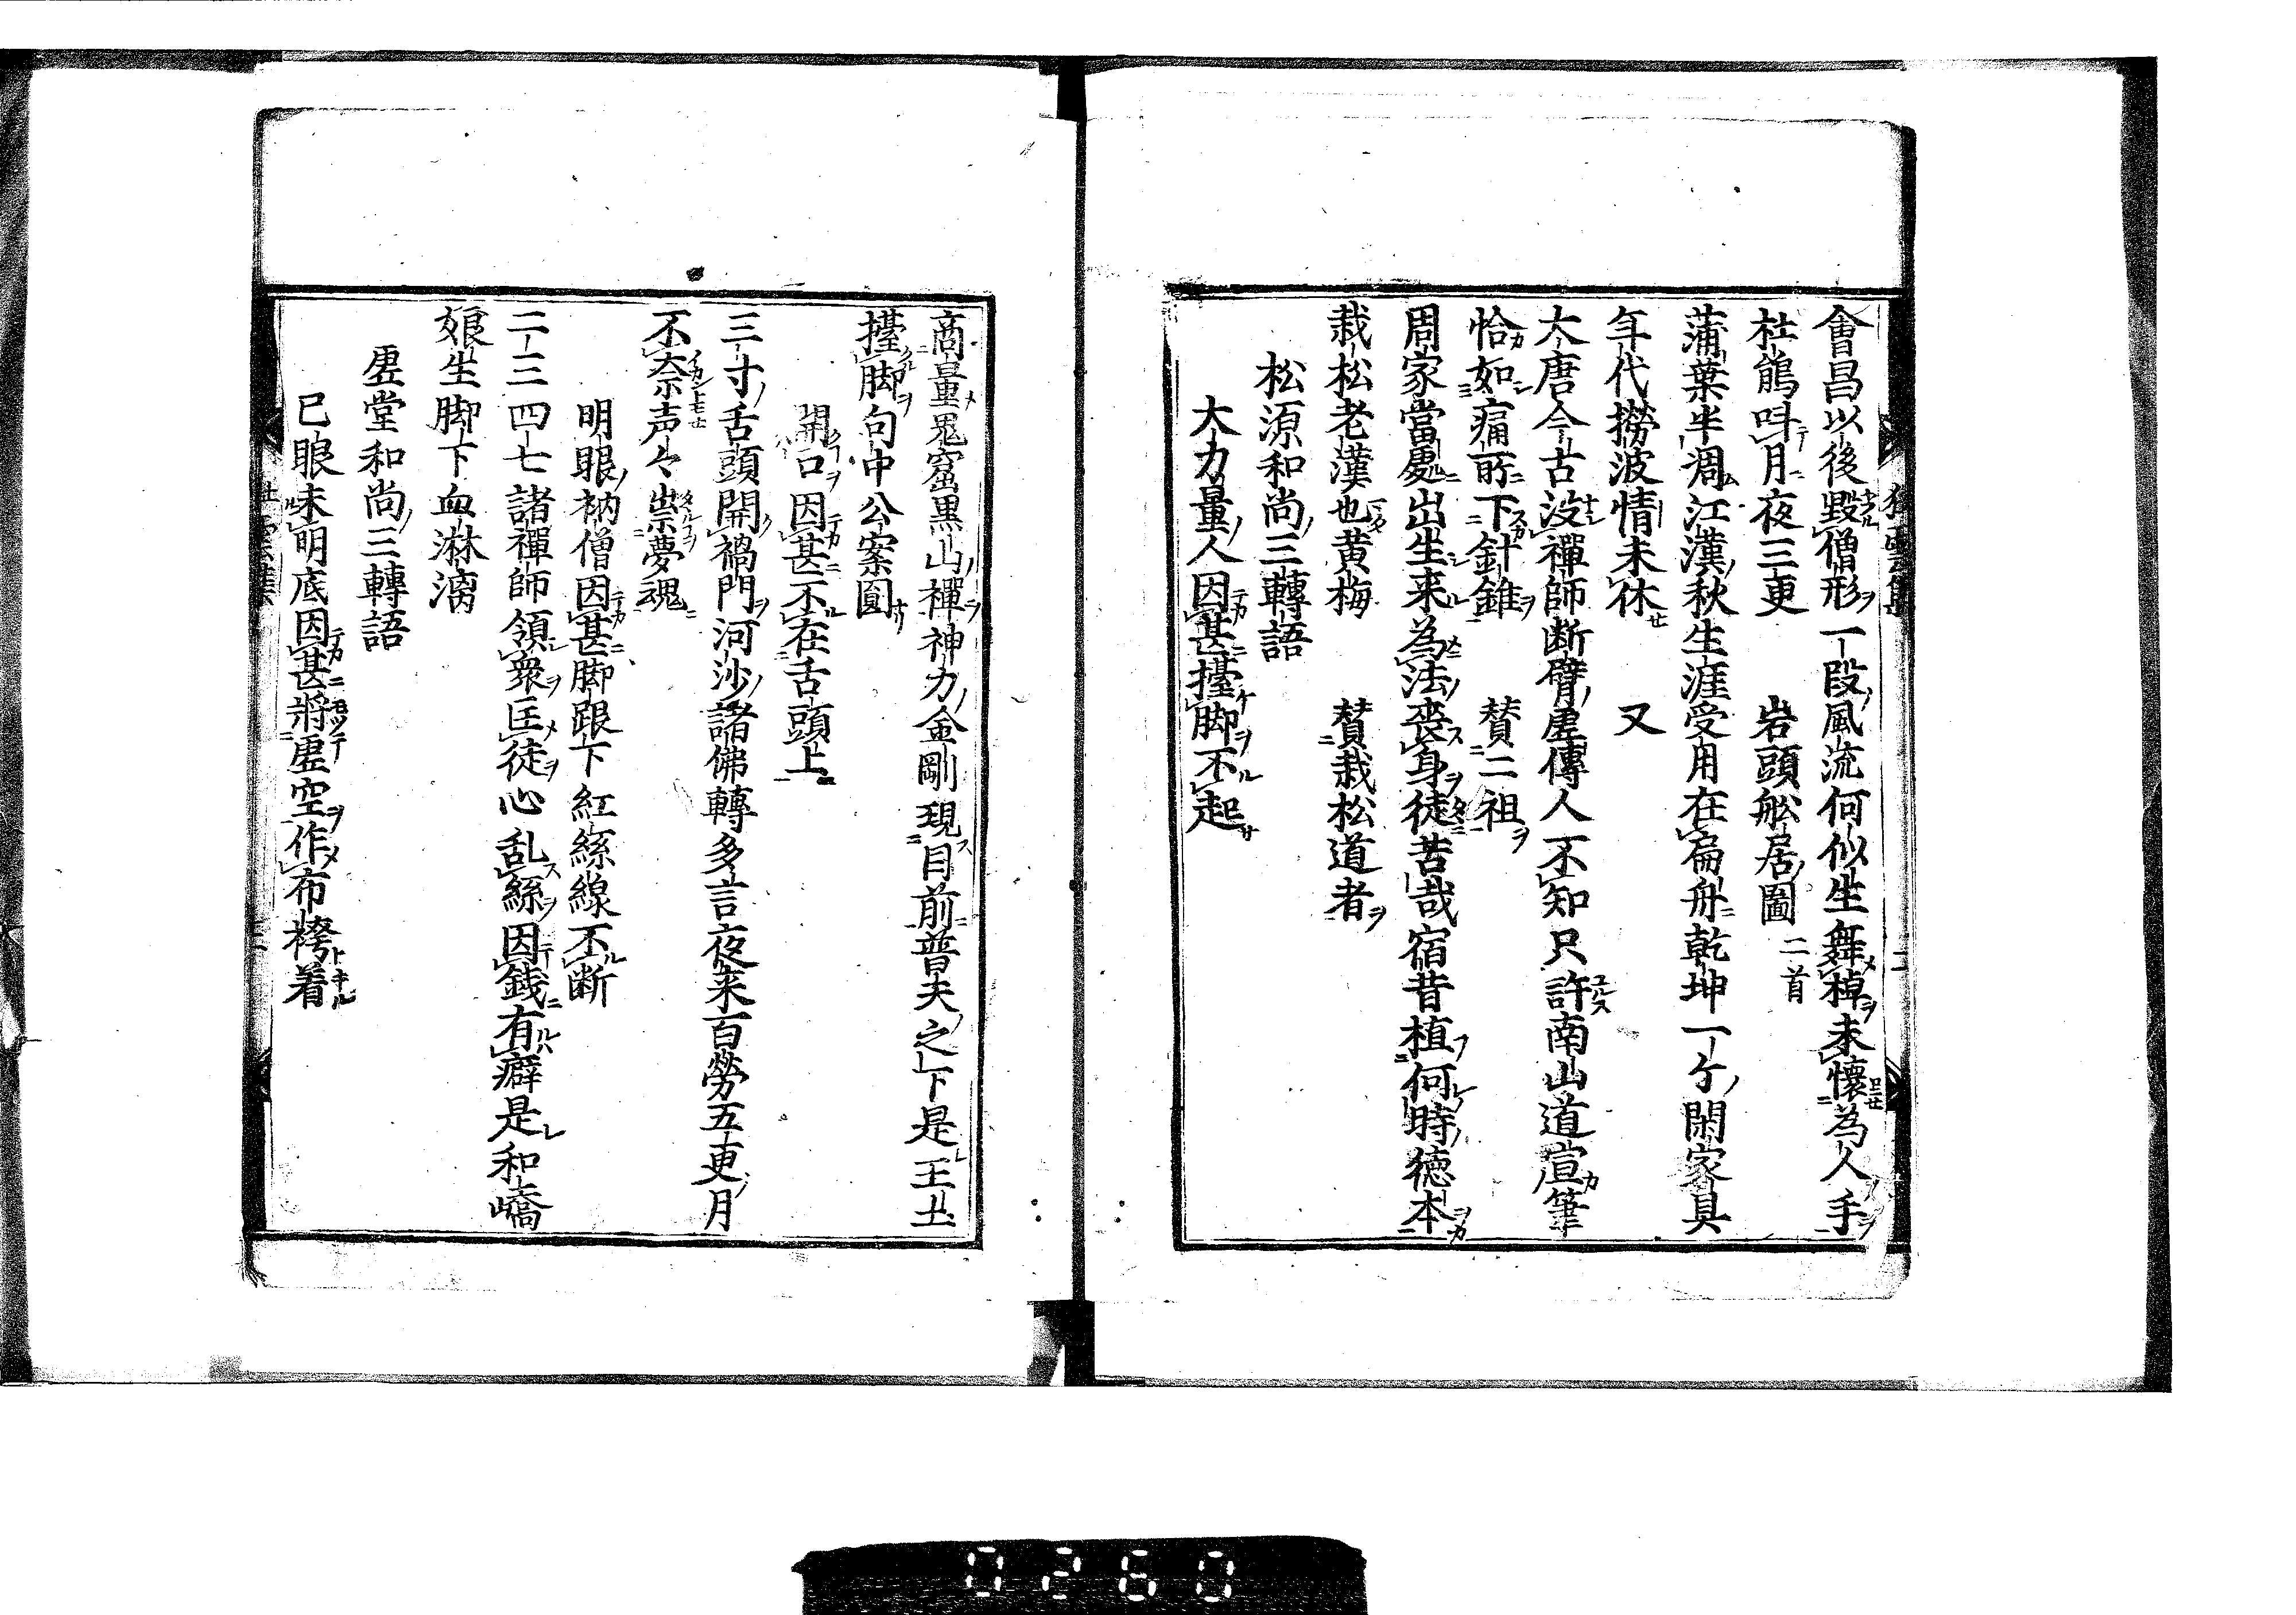 會昌以後毀僧形一段風流何似生舞棹未懐為人手
杜鵑呌月夜三更　岩頭舩居圖 二首
蒲葉半凋江漢秋生涯受用在扁舟乾坤一ケ閑家具
年代撈波情未休　又
大唐今古没禪師断臂虚傳人不知只許南山道宣筆
恰如痛所下針錐　賛二祖
周家當處出生来為法喪身徒苦哉宿昔植何時徳本
栽松老漢也黄梅　賛栽松道者
松源和尚三轉語
大力量人因甚擡脚不起
商量鬼窟黒山禪神力金剛現目前普天之下是王土
擡脚句中公案圓
開口因甚不在舌頭上
三寸舌頭開禍門河沙諸佛轉多言夜来百勞五更月
不奈声々祟夢魂
明眼衲僧因甚脚跟下紅絲線不断
二三四七諸禪師領衆匡徒心乱絲因錢有癖是和嶠
娘生脚下血淋漓
虚堂和尚三轉語
已眼未明底因甚將虚空作布袴着
0260